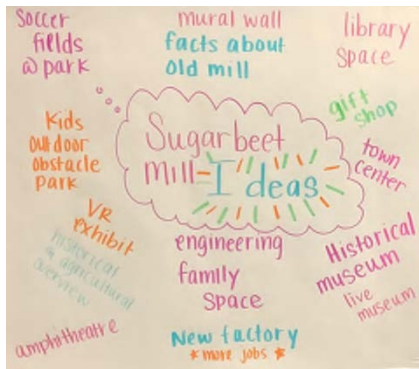 soccer
fields
@ park
mural wall
facts about
old mill
library
space
Kids
outdoor
obstacle
park
Sugarbeet
mill - Ideas
gift
shop
town
center
VR
exhibit
historical
& agricultural
overview
engineering
family
space
Historical
museum
live
museum
amphitheatre
New factory
* more jobs *